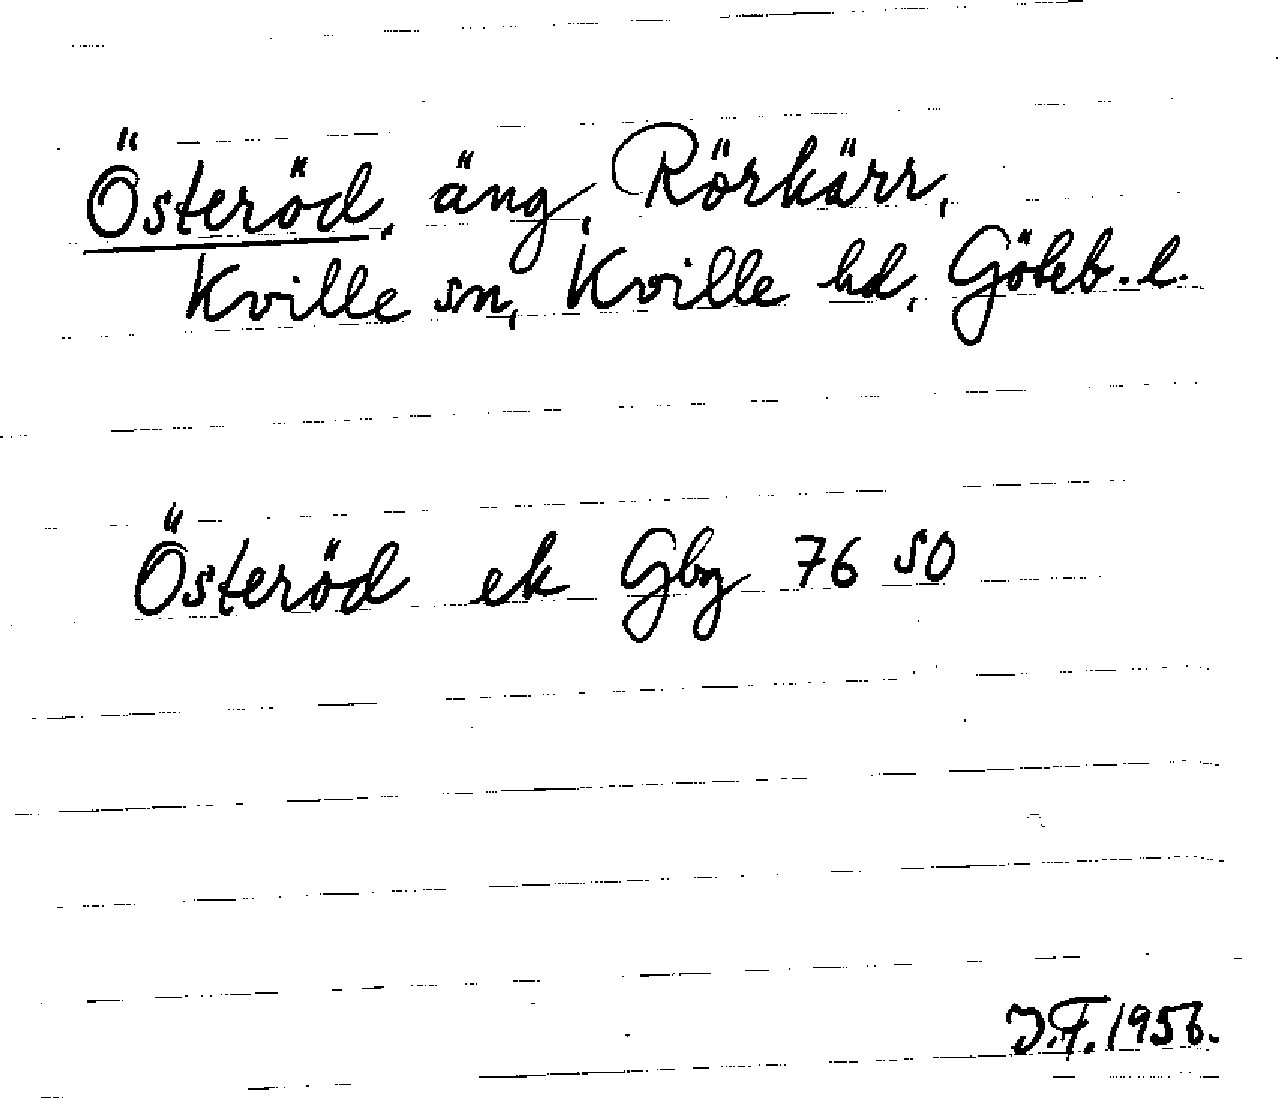 Österöd, äng, Rörkärr,
Kville sn, Kville hd, Göteb. l.
Österöd ek Gbg 76 SO
J.F. 1956.